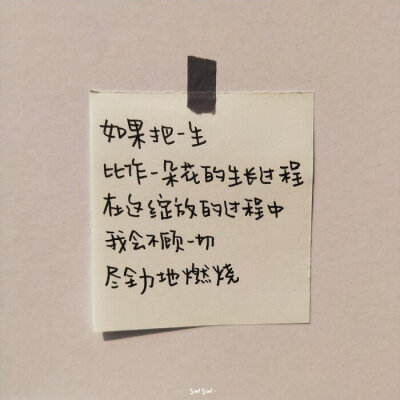 如果把一生
比作一朵花的生长过程
在这绽放的过程中
我会不顾一切
尽全力地燃烧
swsw.